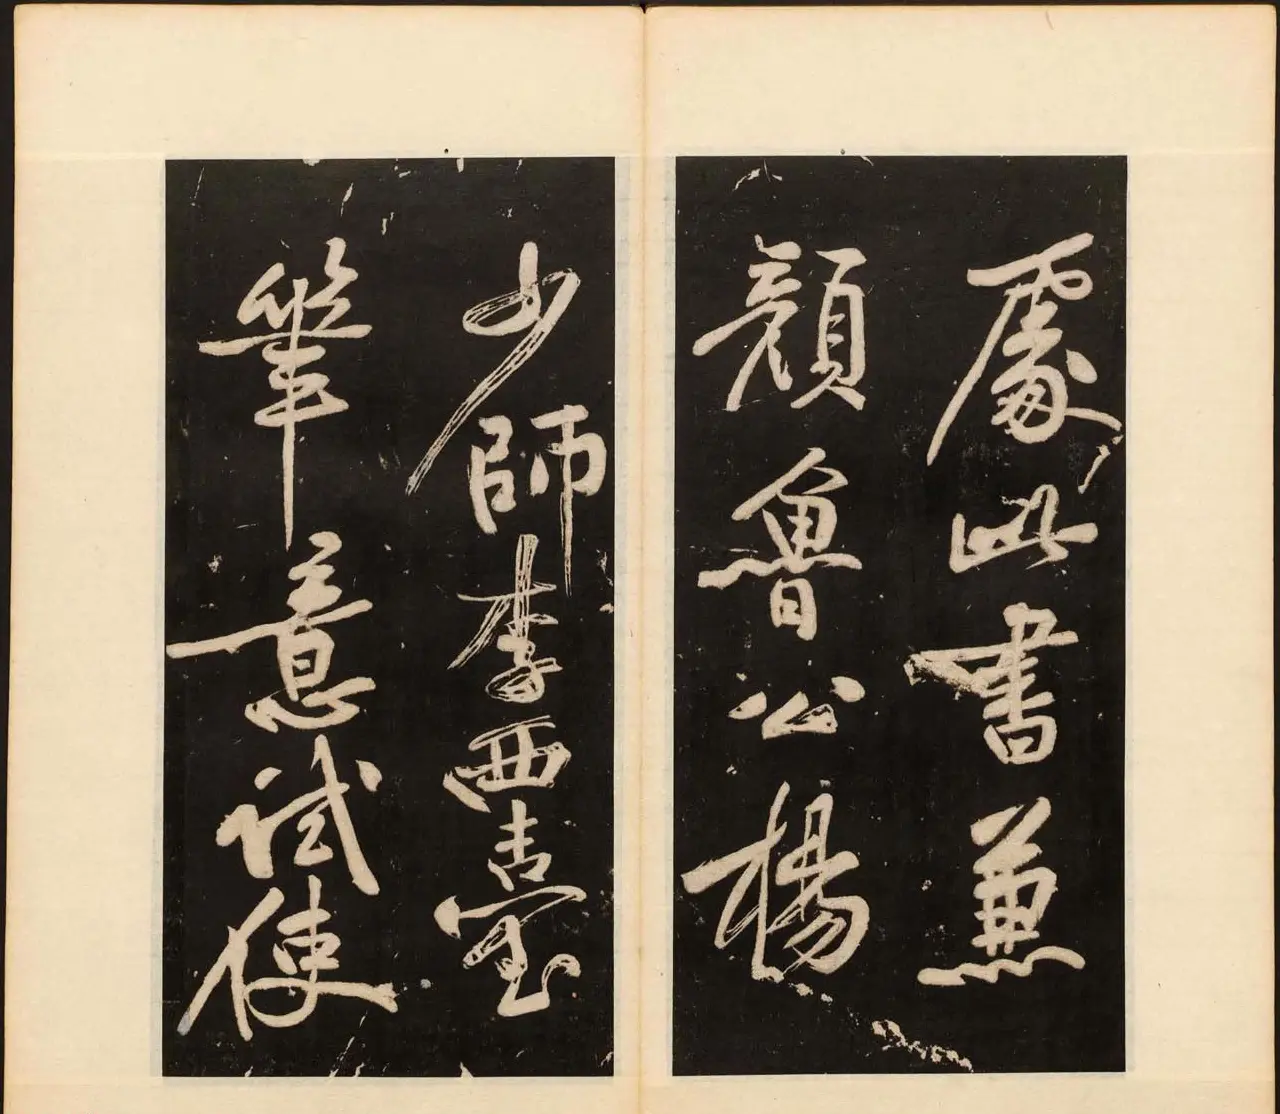 處此書兼
顔魯公楊
少師李西臺
筆意試使